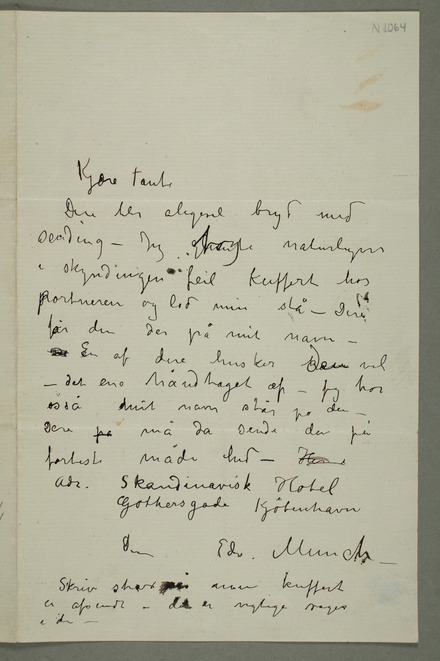 N 1064
Kjære tante
Dere blev alligevel bryd med
sending – Jeg tog naturligvis
i skyndingen feil kuffert hos
portneren og lod min stå – Den
får du der på mit navn –
En af dere husker den vel
– det ene håndtaget af – Jeg har
også mit navn står på den –
Dere må da sende den på
forteste måde hid –
adr. Skandinavisk Hotel
Gothersgade Kjöbenhavn
Din Edv. Munch
Skriv strax min kuffert
er afsendt – der er vigtige sager
i den –